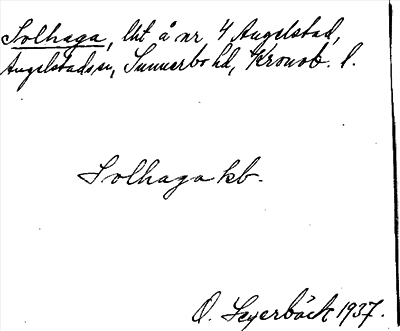 Solhaga, lht å nr 4 Angelstad,
Angelstads sn, Sunnerbo hd, Kronob. l.
Solhaga kb.
O. Segerbäck 1937.